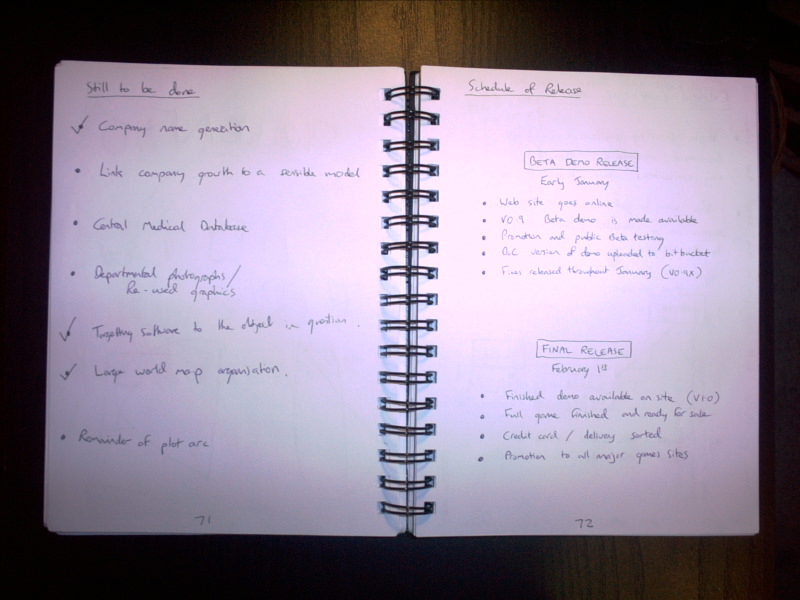 Still to be done
Company name generation
Link company growth to a sensible model
Central Medical Database
Departmental photographs /
Re-used graphics
Targetting software to the object in question.
Large world map organisation.
Remainder of plot arc
71
Schedule of Release
BETA DEMO RELEASE
Early January
Web site goes online
V0.9 Beta demo is made available
Promotion and public Beta testing
version of demo uploaded to bitbucket
Fixes released throughout January (V0.9X)
FINAL RELEASE
February 1st
Finished demo available on site (V1.0)
Full game finished and ready for sale
Credit card / delivery sorted
Promotion to all major games sites
72